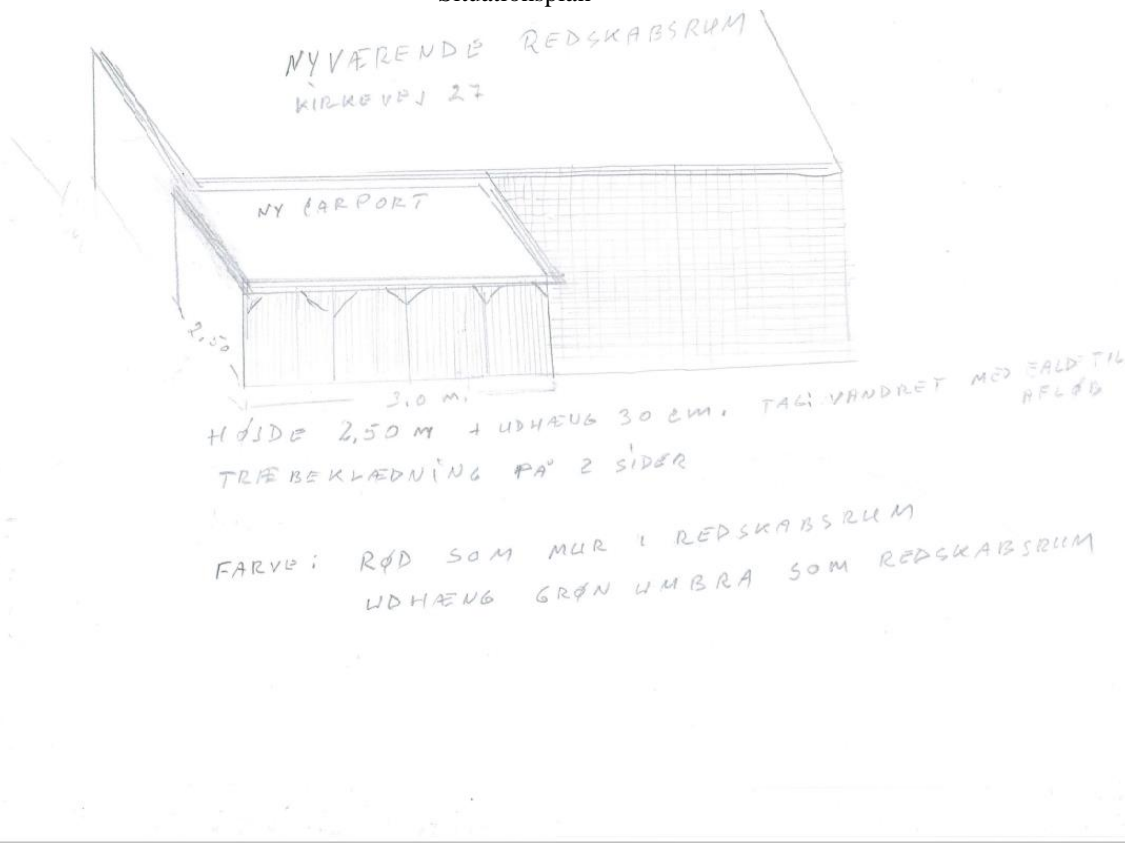 Situationsplan
NYVÆRENDE REDSKABSRUM
KIRKEVEJ 27
NY CARPORT
2,50
3,0 M.
HØJDE 2,50 M + UDHÆNG 30 CM. TAG: VANDRET MED FALD TIL
AFLØB
TRÆBEKLÆDNING PÅ 2 SIDER
FARVE: RØD SOM MUR I REDSKABSRUM
UDHÆNG GRØN UMBRA SOM REDSKABSRUM